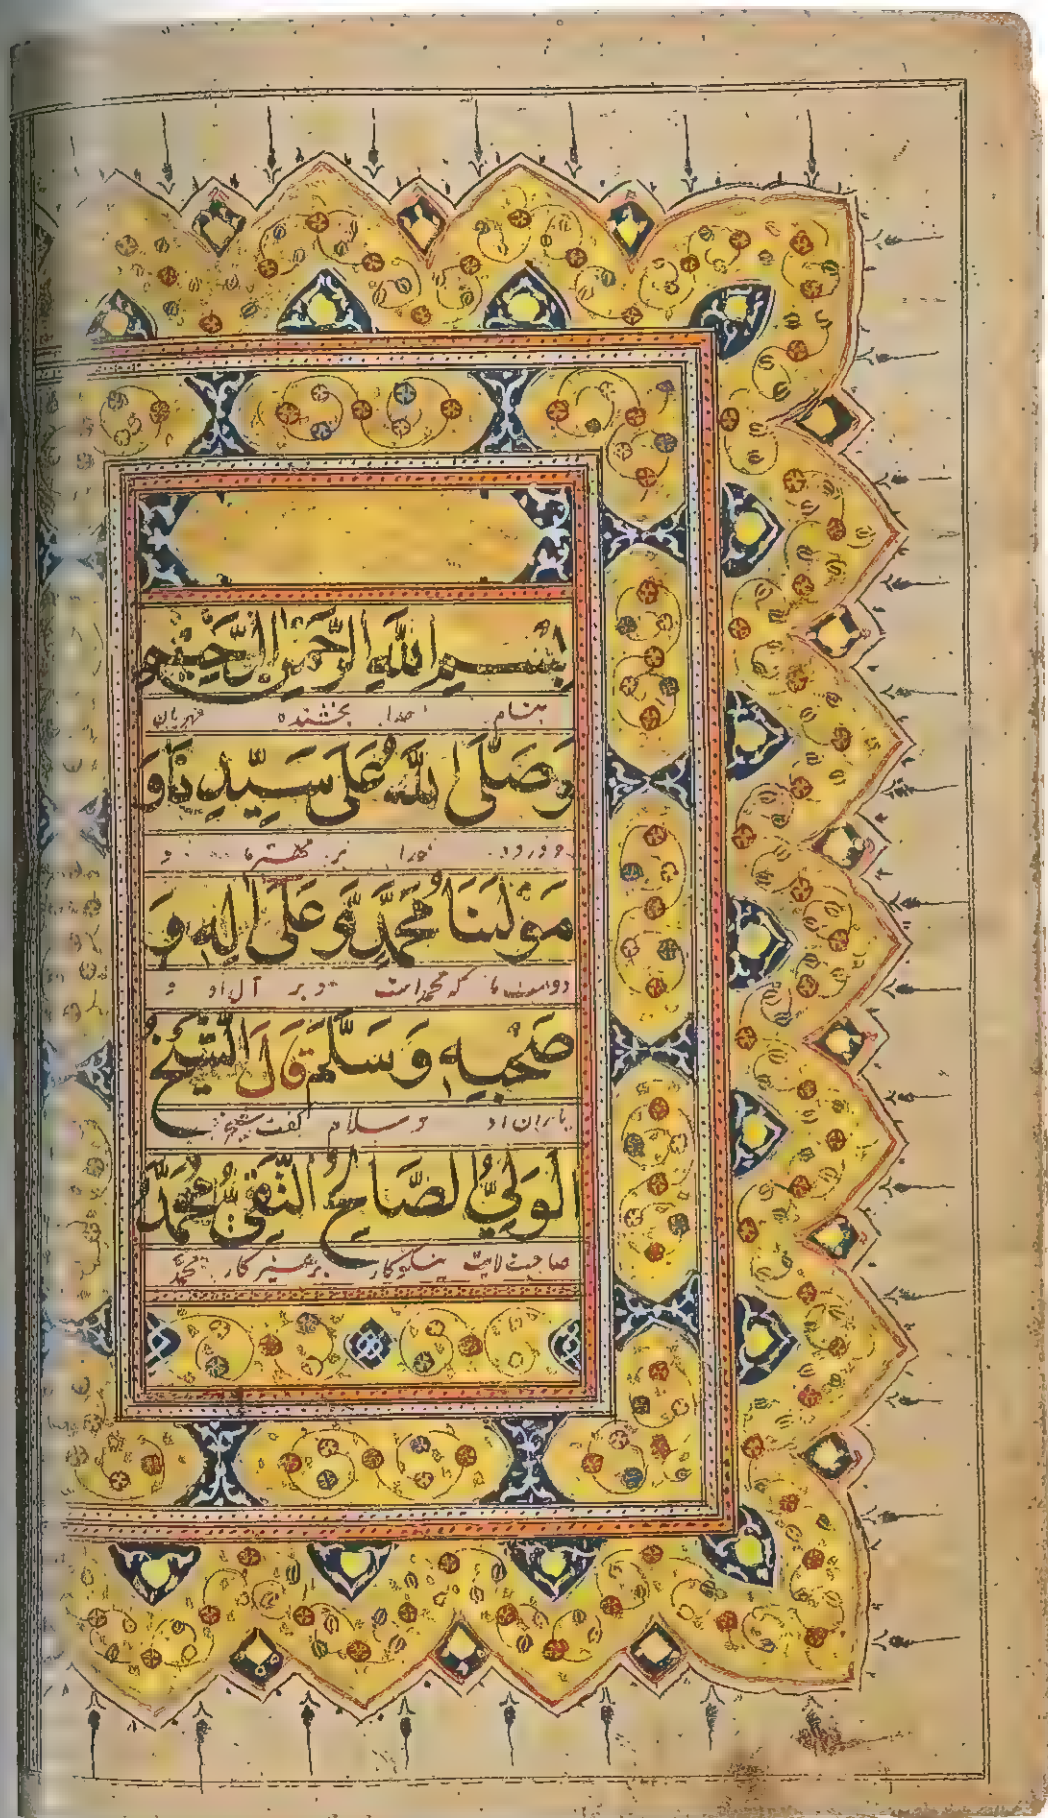 بِسْمِ اللّٰهِ الرَّحْمٰنِ الرَّحِيْمِ
بنام خدا بخشنده مهربان
وَصَلَّى اللّٰهُ عَلٰى سَيِّدِنَا وَ
و درود خدا بر مهتر ما و
مَوْلٰنَا مُحَمَّدٍ وَّعَلٰى اٰلِهٖ وَ
دوست ما که محمد است و بر آل او و
صَحْبِهٖ وَسَلَّمَ قَالَ الشَّيْخُ
یاران او و سلام گفت شیخ
الْوَلِيُّ الصَّالِحُ التَّقِيُّ مُحَمَّدُ
صاحب ولایت نیکوکار پرهیزکار محمد